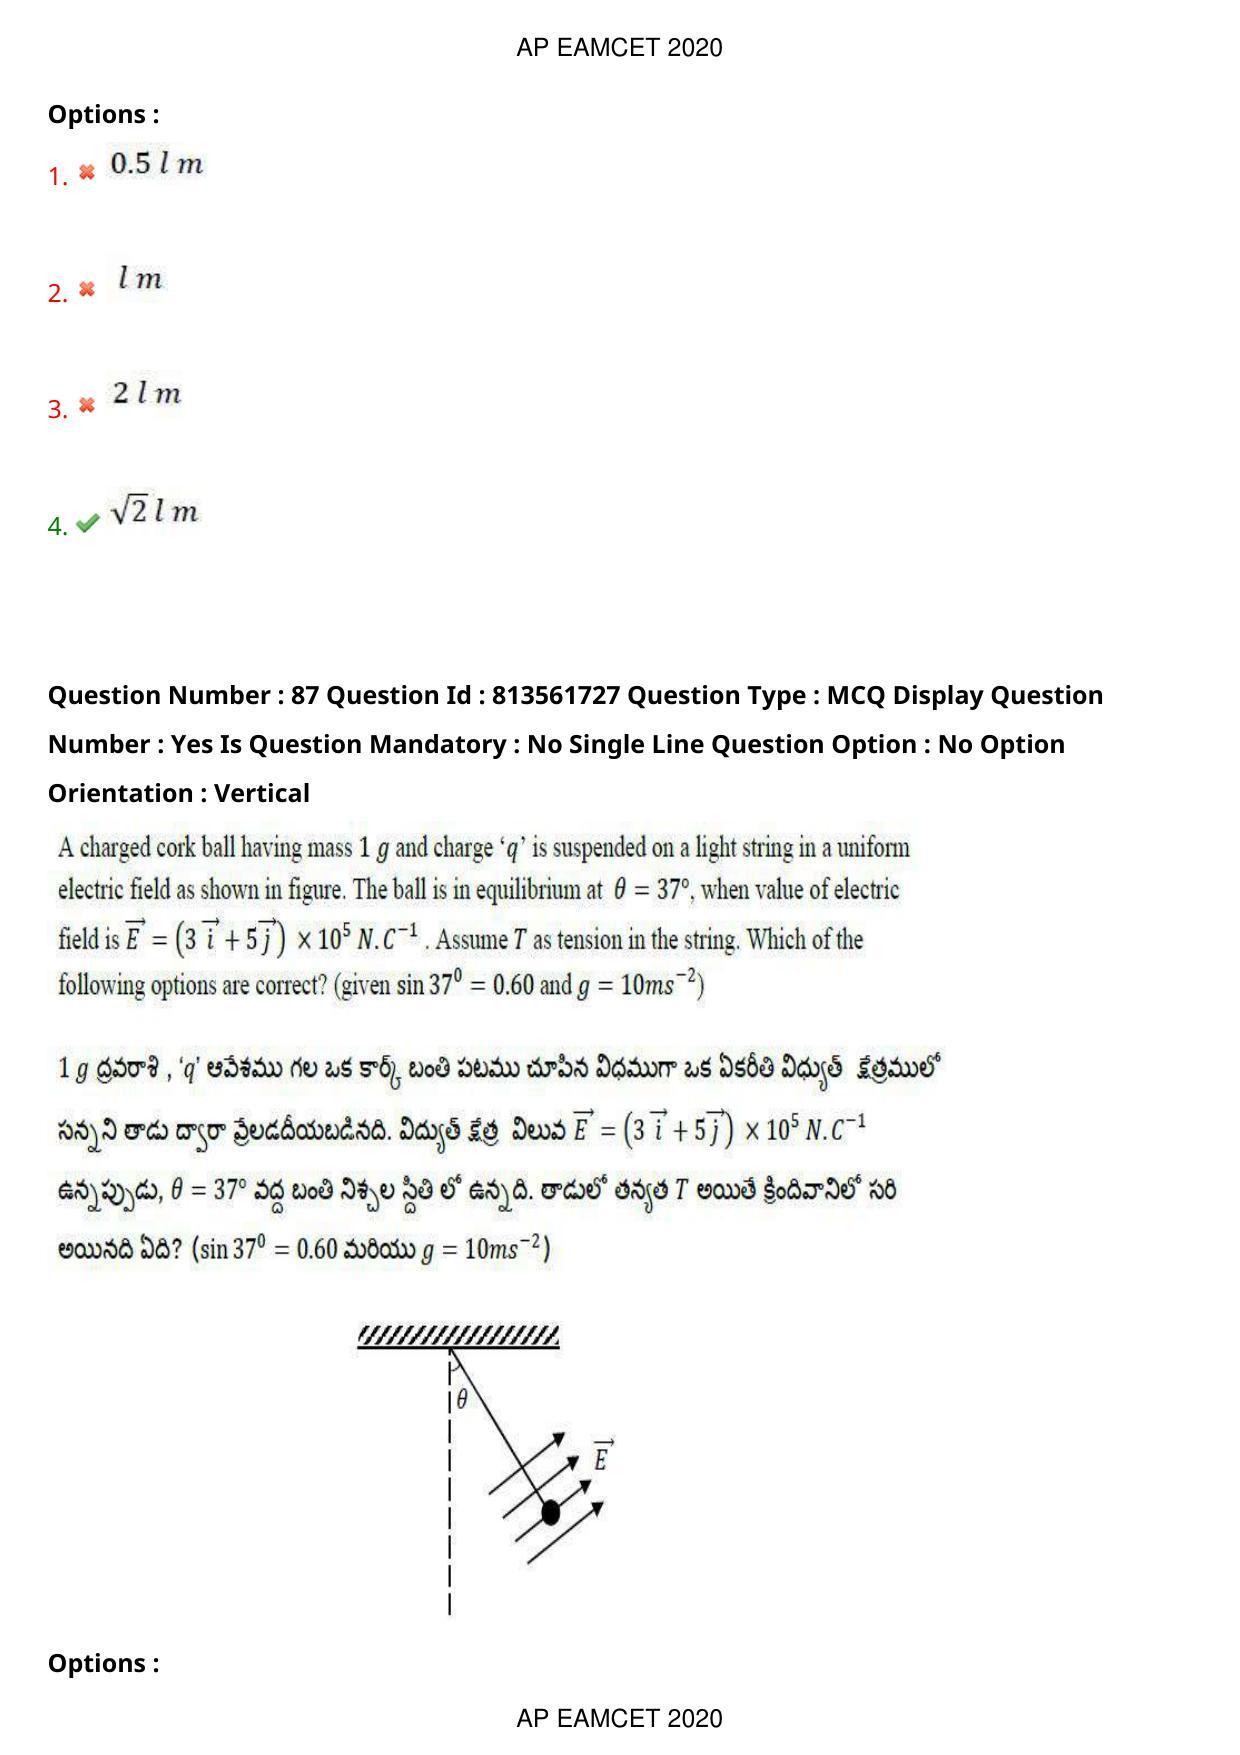 AP EAMCET 2020
Options :
1. 0.5 l m
2. l m
3. 2 l m
4. √2 l m
Question Number : 87 Question Id : 813561727 Question Type : MCQ Display Question
Number : Yes Is Question Mandatory : No Single Line Question Option : No Option
Orientation : Vertical
A charged cork ball having mass 1 g and charge ‘q’ is suspended on a light string in a uniform
electric field as shown in figure. The ball is in equilibrium at θ = 37°, when value of electric
field is E⃗ = (3 i⃗ + 5j⃗) × 10⁵ N.C⁻¹ . Assume T as tension in the string. Which of the
following options are correct? (given sin 37⁰ = 0.60 and g = 10ms⁻²)
1 g ద్రవరాశి , ‘q’ ఆవేశము గల ఒక కార్క్ బంతి పటము చూపిన విధముగా ఒక ఏకరీతి విధ్యుత్ క్షేత్రములో
సన్నని తాడు ద్వారా వ్రేలడదీయబడినది. విద్యుత్ క్షేత్ర విలువ E⃗ = (3 i⃗ + 5j⃗) × 10⁵ N.C⁻¹
ఉన్నప్పుడు, θ = 37° వద్ద బంతి నిశ్చల స్థితి లో ఉన్నది. తాడులో తన్యత T అయితే క్రిందివానిలో సరి
అయినది ఏది? (sin 37⁰ = 0.60 మరియు g = 10ms⁻²)
θ
E⃗
Options :
AP EAMCET 2020